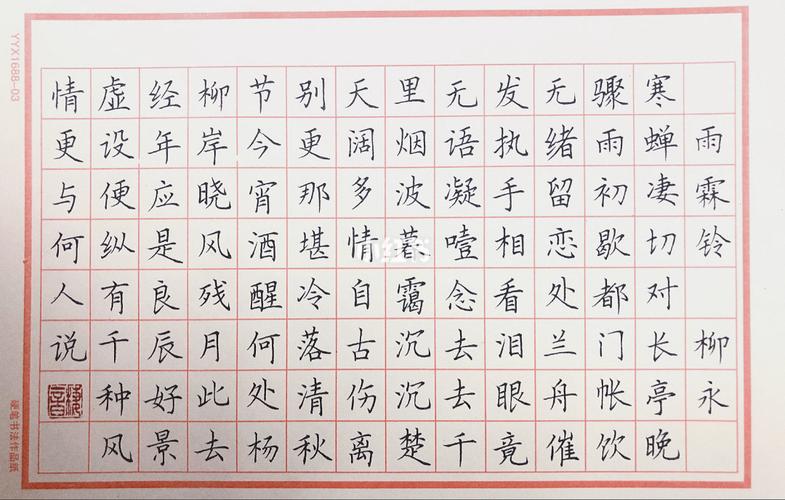 雨霖铃 柳永
寒蝉凄切对长亭晚
骤雨初歇都门帐饮
无绪留恋处兰舟催
发执手相看泪眼竟
无语凝噎念去去千
里烟波暮霭沉沉楚
天阔多情自古伤离
别更那堪冷落清秋
节今宵酒醒何处杨
柳岸晓风残月此去
经年应是良辰好景
虚设便纵有千种风
情更与何人说
YYX1688-03
硬笔书法作品纸
小红书